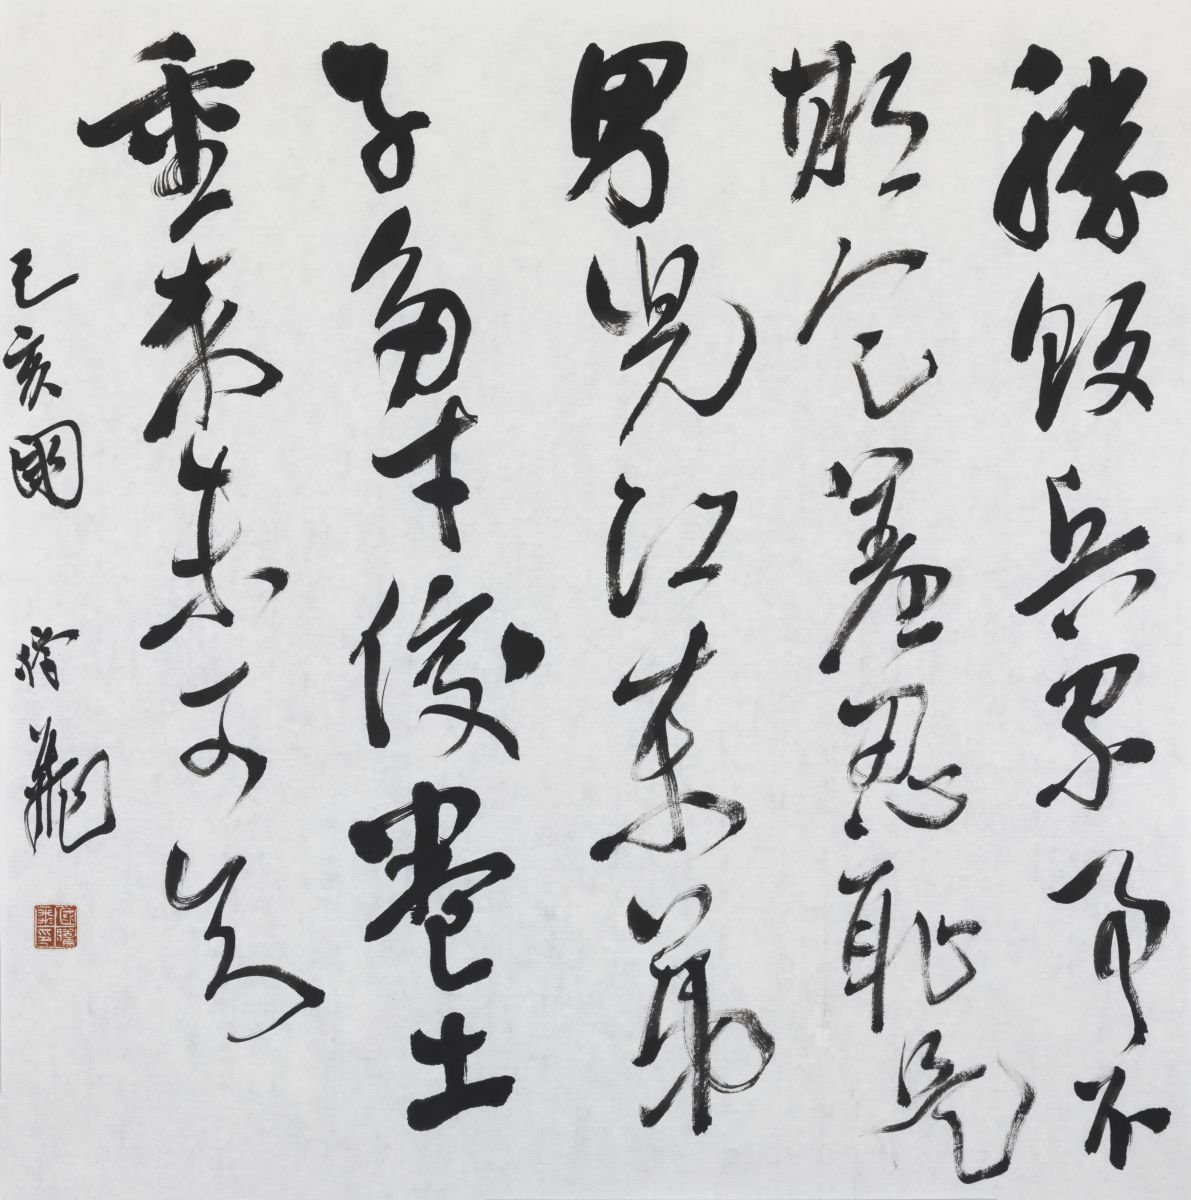 勝敗兵家事不
期包羞忍恥是
男兒江東弟
子多才俊卷土
重來未可知
己亥國